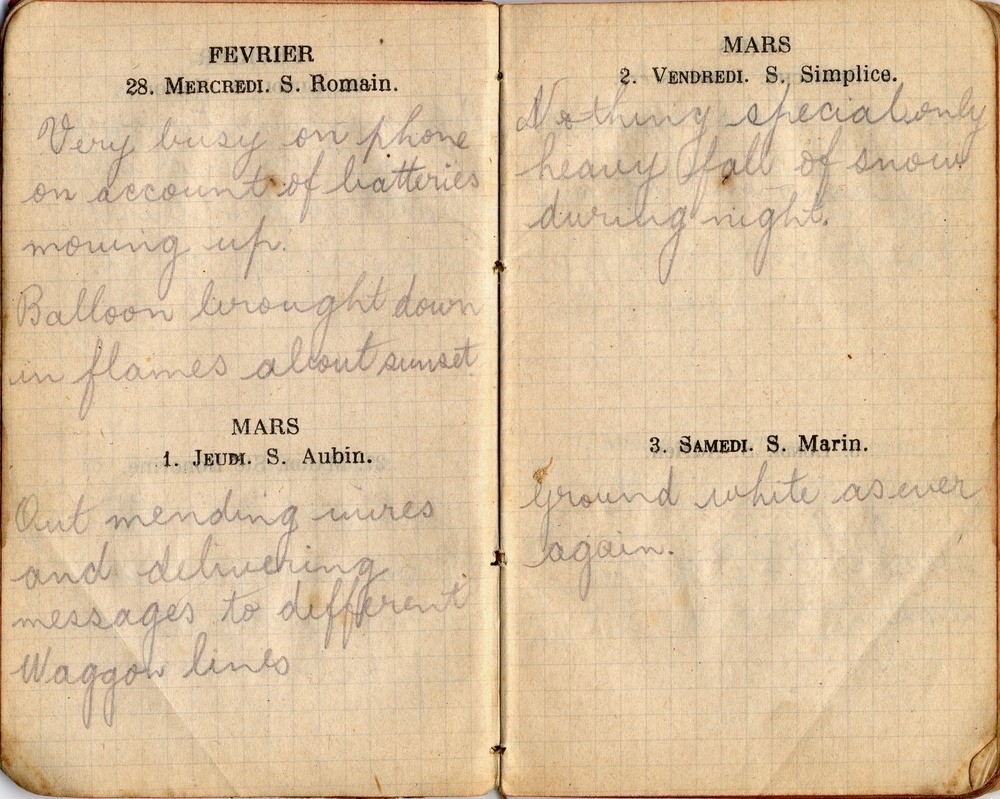 FEVRIER
28. MERCREDI. S. Romain.
Very busy on phone
on account of batteries
moving up.
Balloon brought down
in flames about sunset
MARS
1. JEUDI. S. Aubin.
Out mending wires
and delivering
messages to different
Waggon lines
MARS
2. VENDREDI. S. Simplice.
Nothing special only
heavy fall of snow
during night.
3. SAMEDI. S. Marin.
Ground white as ever
again.